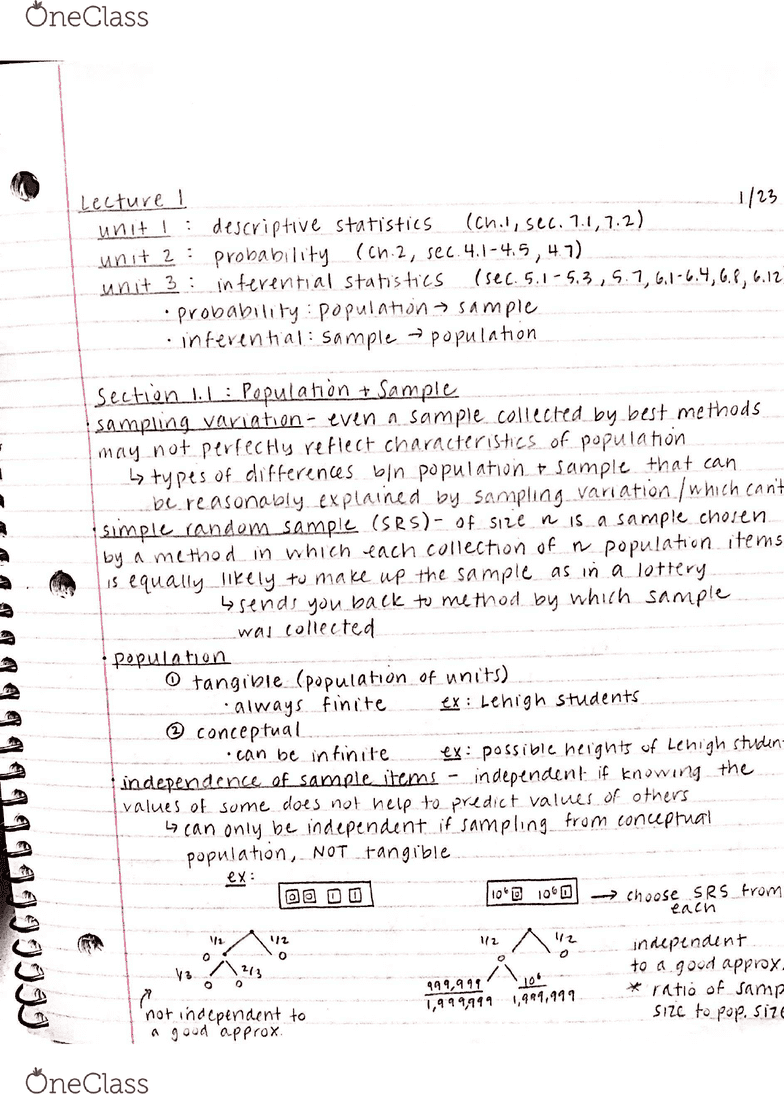 OneClass
Lecture 1 1/23
unit 1 : descriptive statistics (ch.1, sec. 7.1, 7.2)
unit 2 : probability (ch.2, sec. 4.1-4.5, 4.7)
unit 3 : inferential statistics (sec. 5.1-5.3, 5.7, 6.1-6.4, 6.8, 6.12
· probability : population → sample
· inferential : sample → population
Section 1.1 : Population + Sample
· sampling variation - even a sample collected by best methods
may not perfectly reflect characteristics of population
↳ types of differences b/n population + sample that can
be reasonably explained by sampling variation / which can't
· simple random sample (SRS) - of size n is a sample chosen
by a method in which each collection of n population items
is equally likely to make up the sample as in a lottery
↳ sends you back to method by which sample
was collected
· population
① tangible (population of units)
· always finite ex : Lehigh students
② conceptual
· can be infinite ex : possible heights of Lehigh studen
· independence of sample items - independent if knowing the
values of some does not help to predict values of others
↳ can only be independent if sampling from conceptual
population, NOT tangible
ex :
0 0 1 1 10⁶ 0 10⁶ 1 → choose SRS from
each
1/2 1/2 1/2 1/2 independent
0 0 0 0 to a good approx.
1/3 2/3 999,999/1,999,999 10⁶/1,999,999 * ratio of samp
0 0 size to pop. size
not independent to
a good approx.
OneClass